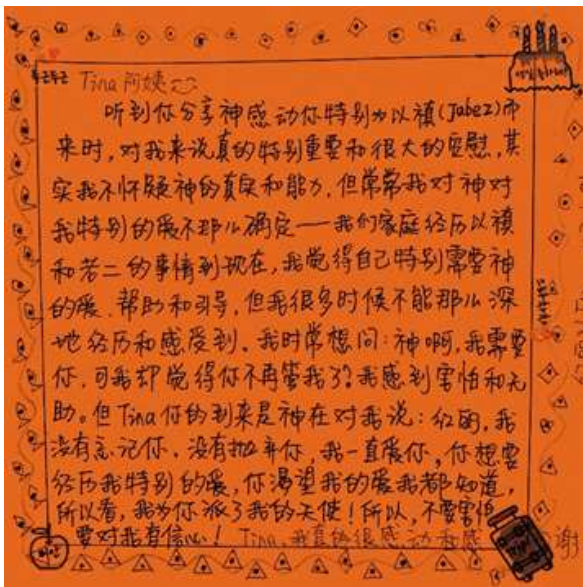 Tina 阿姨
听到你分享神感动你特别为以禛(Jabez)而
来时,对我来说真的特别重要和很大的安慰,其
实我不怀疑神的真实和能力,但常常我对神对
我特别的爱不那么确定——我们家庭经历以禛
和若二的事情到现在,我觉得自己特别需要神
的爱、帮助和引导,但我很多时候不能那么深
地经历和感受到。我时常想问:神啊,我需要
你,可我却觉得你不再管我了?我感到害怕和无
助。但Tina你的到来是神在对我说:红雨,我
没有忘记你,没有抛弃你,我一直爱你,你想要
经历我特别的爱,你渴望我的爱我都知道,
所以看,我为你派了我的天使!所以,不要害怕
要对我有信心!Tina,我真的很感动和感谢